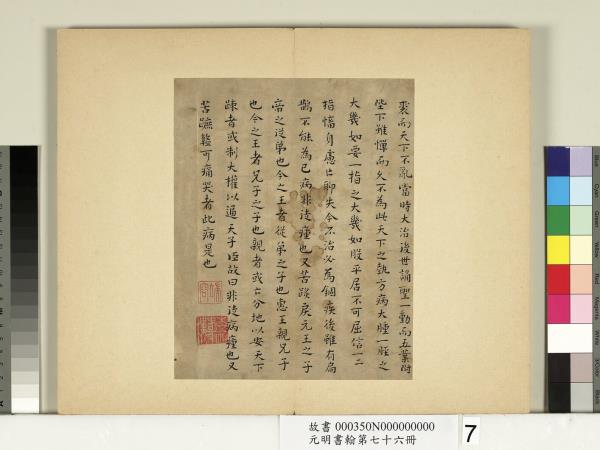 裘而天下不亂當時大治後世誦聖一動而五業附
陛下誰憚而久不為此天下之埶方病大腫一脛之
大幾如要一指之大幾如股平居不可屈信一二
指慉身慮亡聊失今不治必為錮疾後雖有扁
鵲不能為已病非徒瘇也又苦蹠戾元王之子
帝之從弟也今之王者從弟之子也惠王親兄子
也今之王者兄子之子也親者或亡分地以安天下
踈者或制大權以逼天子臣故曰非徒病瘇也又
苦蹠盭可痛哭者此病是也
故書 000350N000000000
元明書翰第七十六冊
7